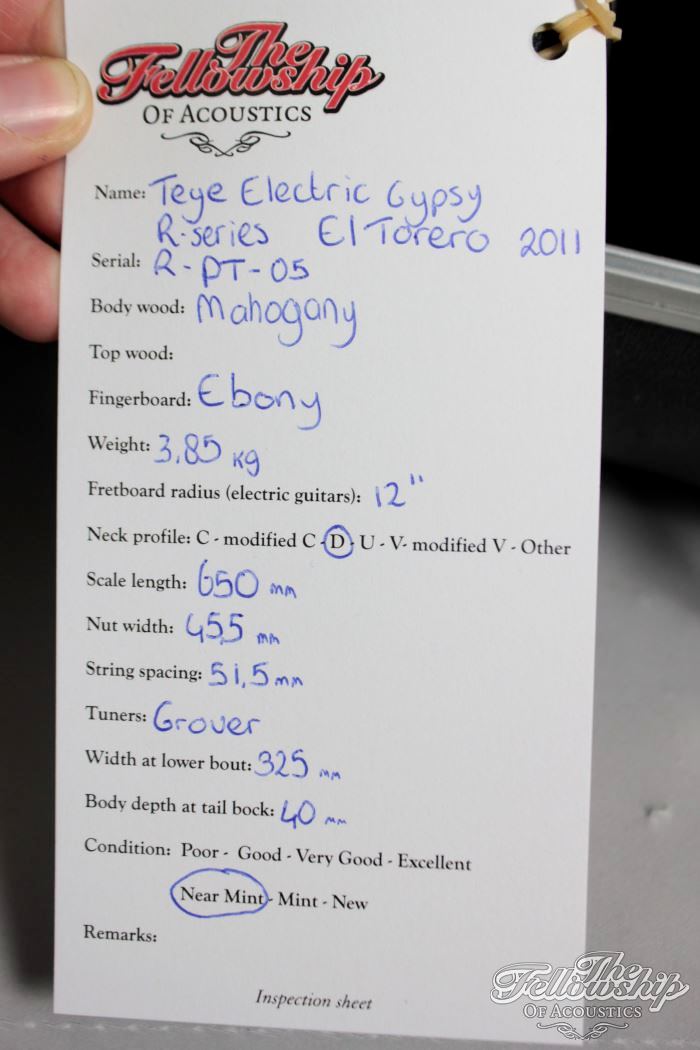 The
Fellowship
OF ACOUSTICS
Name: Teye Electric Gypsy
R-series El Torero 2011
Serial: R-PT-05
Body wood: Mahogany
Top wood:
Fingerboard: Ebony
Weight: 3,85 kg
Fretboard radius (electric guitars): 12"
Neck profile: C - modified C - D - U - V- modified V - Other
Scale length: 650 mm
Nut width: 45,5 mm
String spacing: 51,5 mm
Tuners: Grover
Width at lower bout: 325 mm
Body depth at tail bock: 40 mm
Condition: Poor - Good - Very Good - Excellent
Near Mint - Mint - New
Remarks:
Inspection sheet
The
Fellowship
OF ACOUSTICS